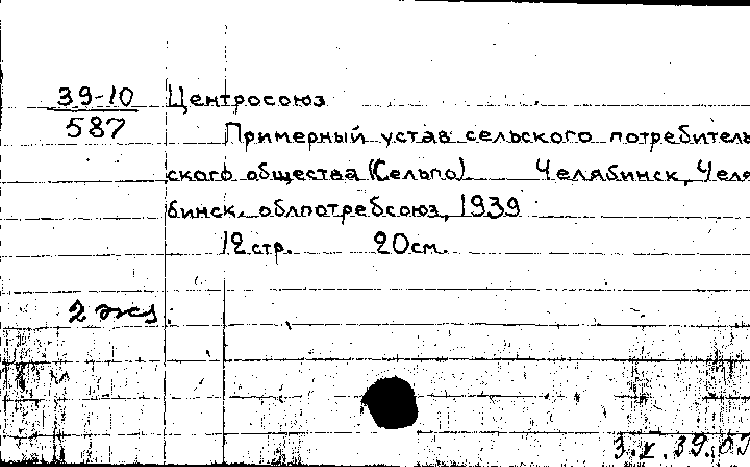 39-10
587
Центросоюз
Примерный устав сельского потребитель
ского общества (Сельпо) Челябинск, Челя
бинск. облпотребсоюз, 1939
12 стр. 20 см.
2 экз.